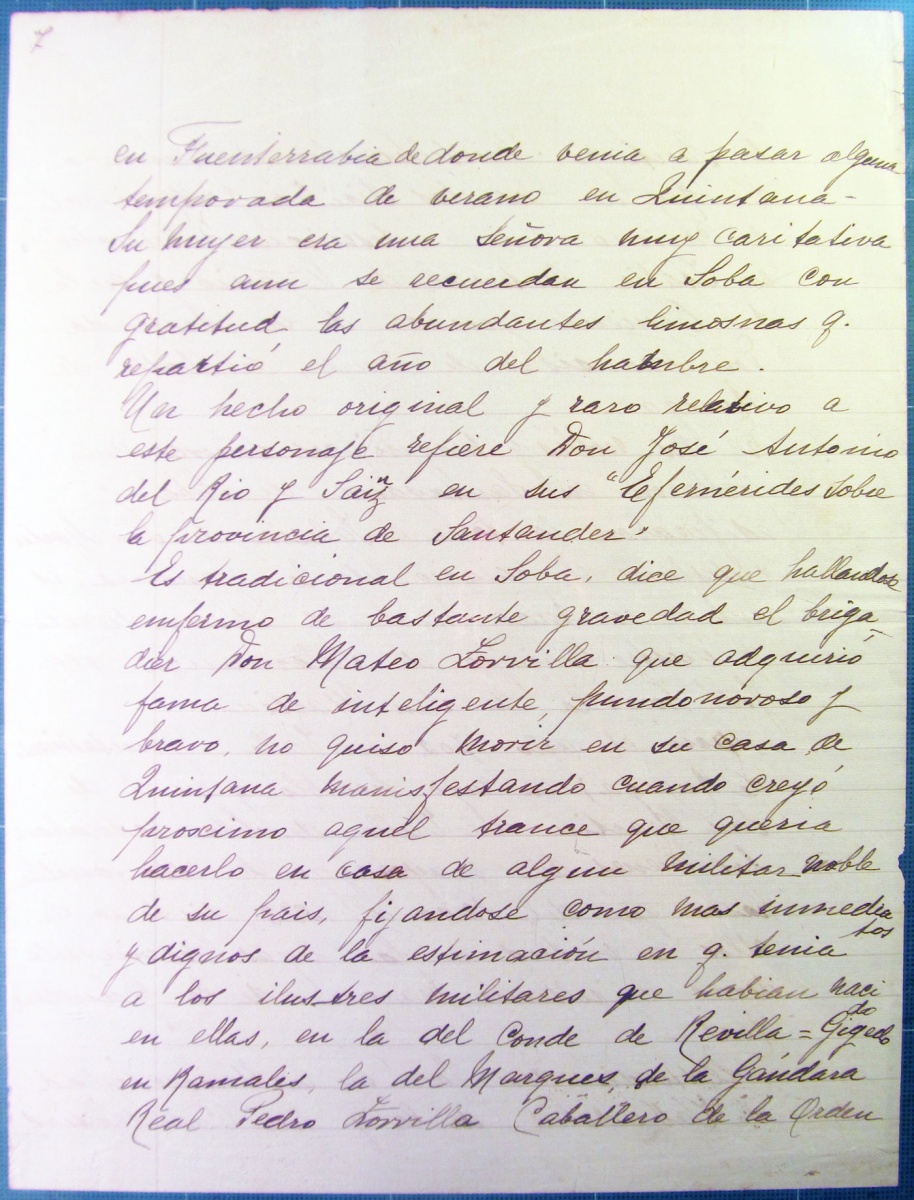 7
en Fuenterrabia de donde venia a pasar alguna
temporada de verano en Quintana-
Su mujer era una señora muy caritativa
pues aun se recuerdan en Soba con
gratitud las abundantes limosnas q.
repartió el año del hambre.
Un hecho original y raro relativo a
este personaje refiere Don José Antonio
del Rio y Sainz en sus "Efemérides sobre
la provincia de Santander"
Es tradicional en Soba, dice que hallandose
enfermo de bastante gravedad el briga-
dier Don Mateo Zorrilla que adquirió
fama de inteligente, pundonoroso y
bravo, no quiso morir en su casa de
Quintana manisfestando cuando creyó
proscimo aquel trance que queria
hacerlo en casa de algun militar noble
de su pais, fijandose como mas inmedia
tos
y dignos de la estimación en q. tenia
a los ilustres militares que habian naci
do
en ellas, en la del Conde de Revilla=Gigedo
en Ramales, la del Marques de la Gándara
Real Pedro Zorrilla Caballero de la Orden